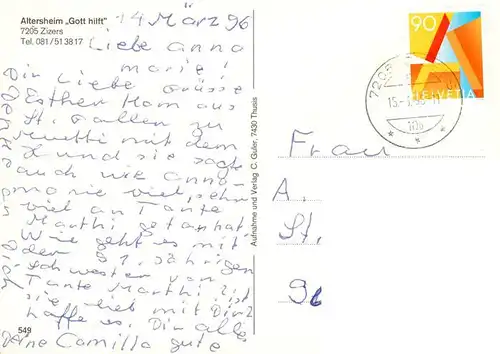 Altersheim „Gott hilft"
7205 Zizers
Tel. 081/51 3817
14 März 96
Liebe Anna
marie!
Dir Liebe Grüsse
Esther Ham aus
St. Gallen zu
mit dem
Hund sie sagte
auch wie anna
marie viel
viel an Tante
Marthi getan hat.
Wie geht es mit
der 91. Jährigen
Schwester von
Tante Marthi ist
sie lieb mit Dir?
hoffe es. Dir alles
gute
Deine Camilla
549
Aufnahme und Verlag C. Guler, 7430 Thusis
90
HELVETIA
7205
Frau
A.
St.
9